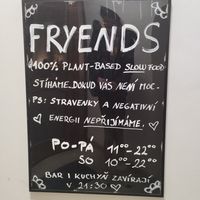 FRYENDS
100% PLANT-BASED SLOW FOOD
STÍHÁME.. DOKUD VÁS NENÍ MOC.
PS: STRAVENKY A NEGATIVNÍ
ENERGII NEPŘIJÍMÁME.
PO-PÁ 11⁰⁰-22⁰⁰
SO 10⁰⁰-22⁰⁰
BAR I KUCHYŇ ZAVÍRAJÍ
V 21:30